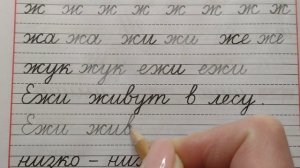 ж ж ж ж ж ж ж ж
жа жа жи жи же же
жук жук ежи ежи
Ежи живут в лесу.
Ежи жив
низко – низ